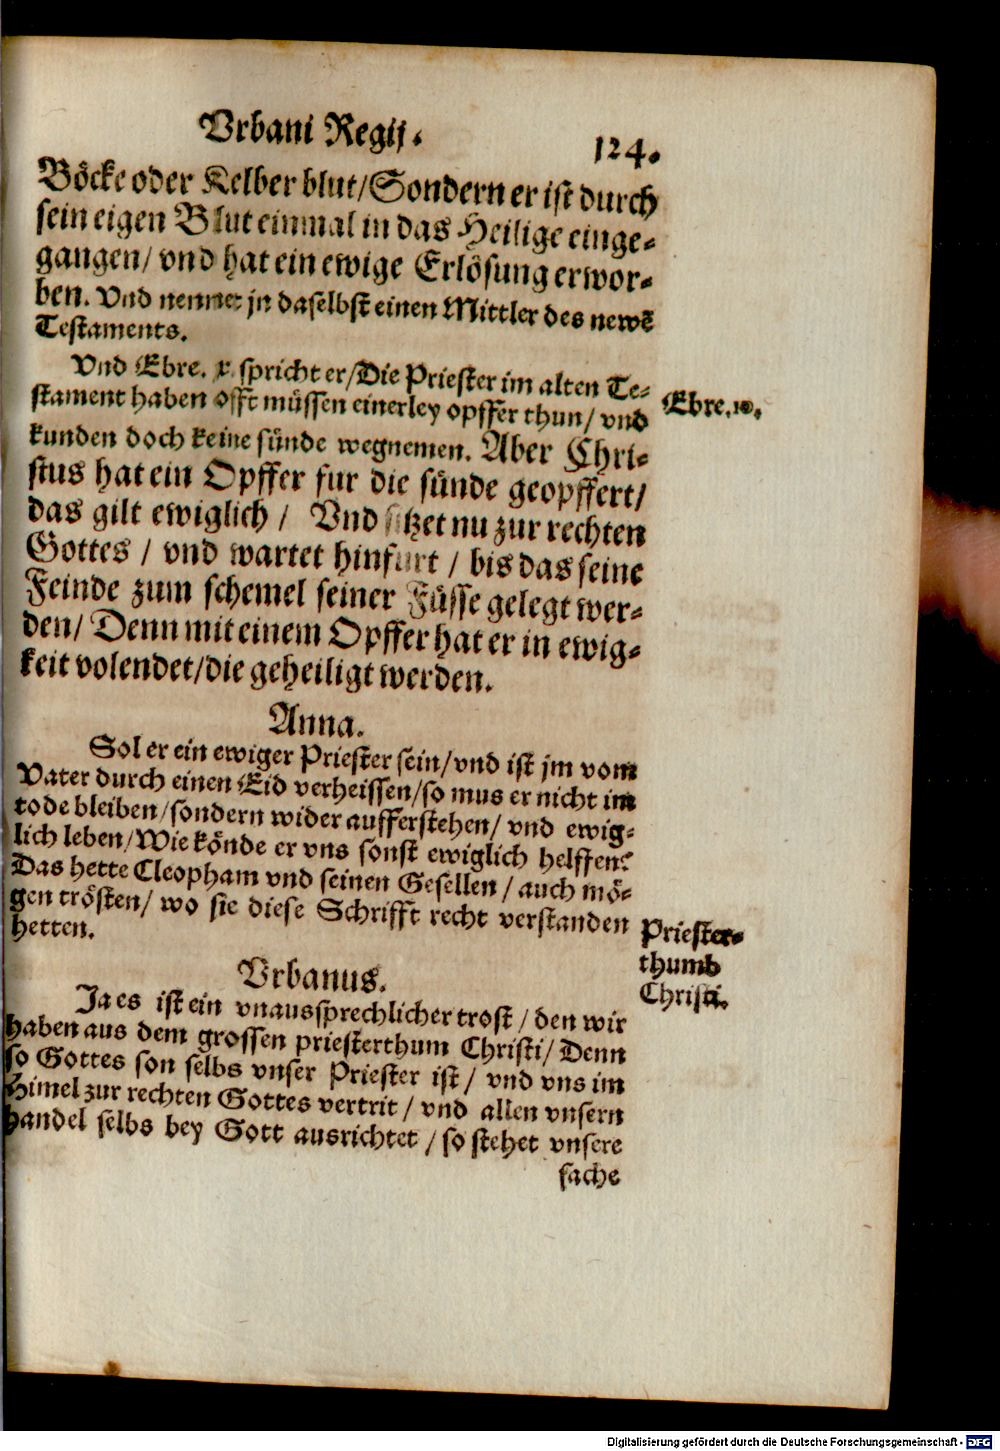 Vrbani Regij.
124.
Böcke oder Kelber blut/Sondern er ist durch
sein eigen Blut einmal in das Heilige einge-
gangen/ vnd hat ein ewige Erlösung erwor-
ben. Vnd nennet jn daselbst einen Mittler des newē
Testaments.
Vnd Ebre. x. spricht er/Die Priester im alten Te-
stament haben offt müssen einerley opffer thun/ vnd
Ebre.10.
kunden doch keine sünde wegnemen. Aber Chri-
stus hat ein Opffer fur die sünde geopffert/
das gilt ewiglich / Vnd sitzet nu zur rechten
Gottes / vnd wartet hinfurt / bis das seine
Feinde zum schemel seiner Füsse gelegt wer-
den/ Denn mit einem Opffer hat er in ewig-
keit volendet/die geheiligt werden.
Anna.
Sol er ein ewiger Priester sein/vnd ist jm vom
Vater durch einen Eid verheissen/so mus er nicht im
tode bleiben/sondern wider aufferstehen/ vnd ewig-
lich leben/Wie könde er vns sonst ewiglich helffen?
Das hette Cleopham vnd seinen Gesellen / auch mö-
gen trösten/ wo sie diese Schrifft recht verstanden
hetten.
Priester-
thumb
Christi.
Vrbanus.
Ja es ist ein vnaussprechlicher trost / den wir
haben aus dem grossen priesterthum Christi/ Denn
so Gottes son selbs vnser Priester ist / vnd vns im
Himel zur rechten Gottes vertrit / vnd allen vnsern
handel selbs bey Gott ausrichtet / so stehet vnsere
sache
Digitalisierung gefördert durch die Deutsche Forschungsgemeinschaft - DFG